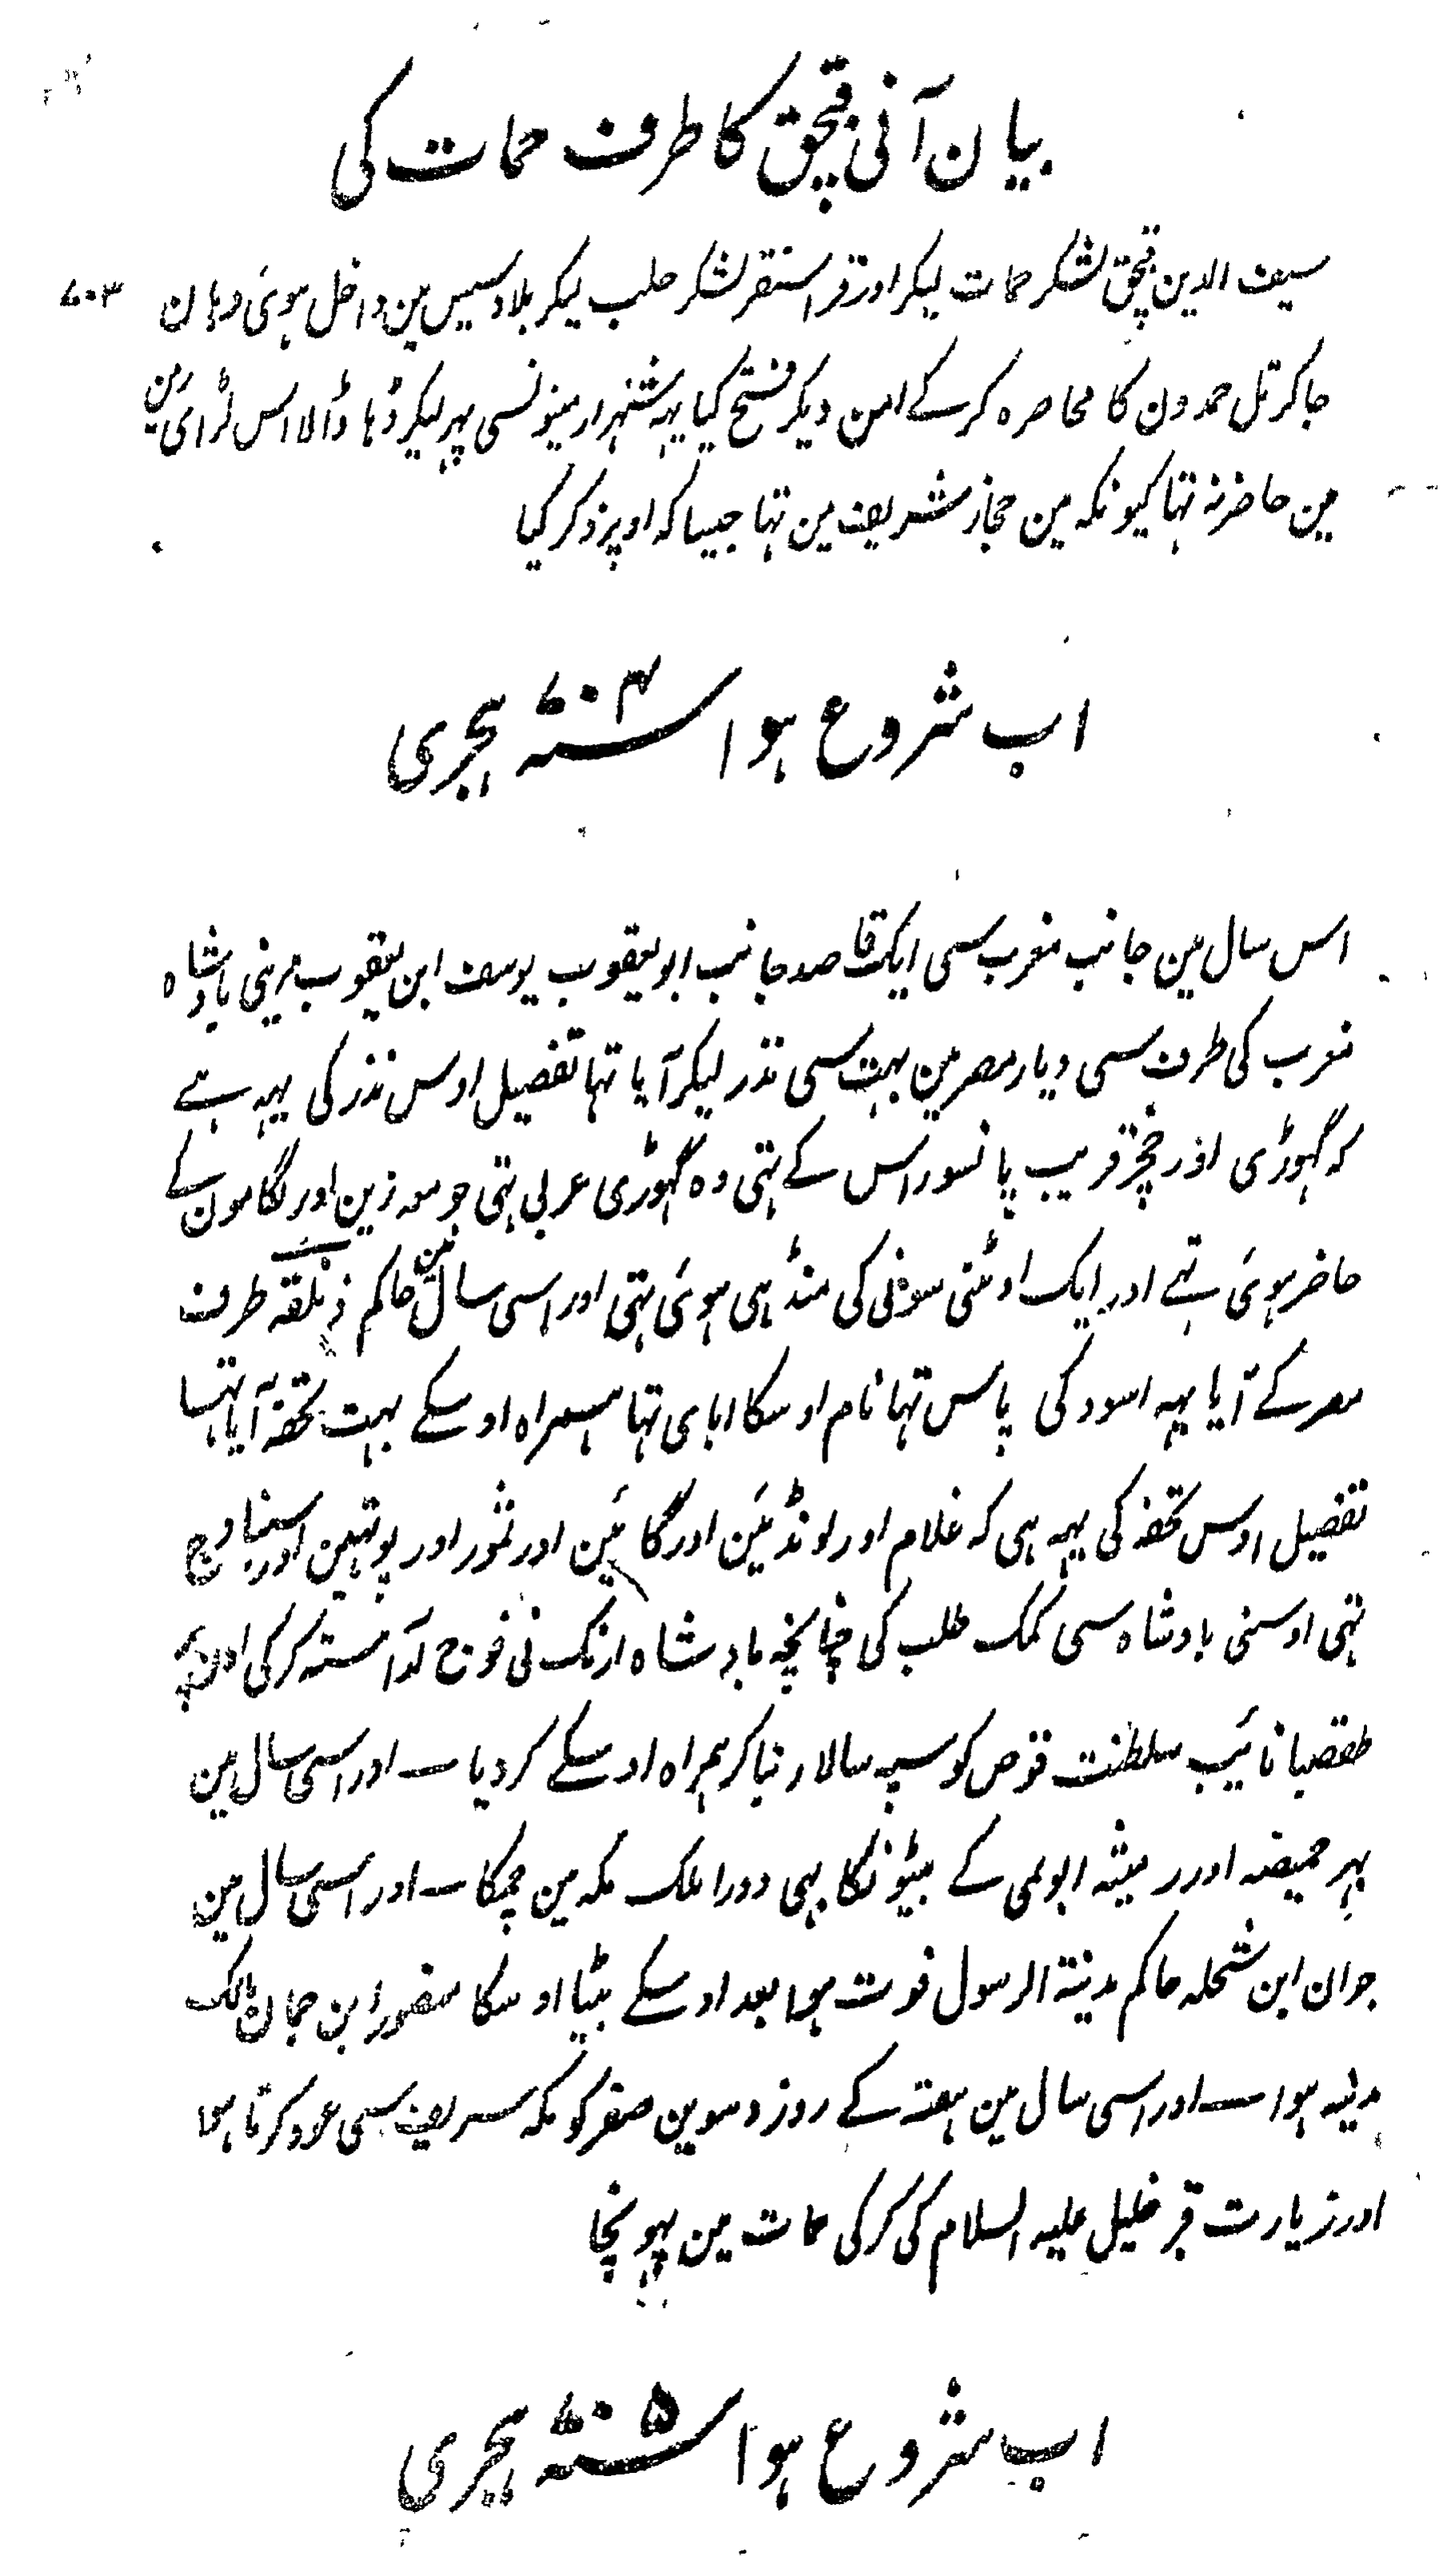 بیان آنی قپچق کا طرف حمات کی
سیف الدین قپچق لشکر حمات لیکر اور قراسنقر لشکر حلب لیکر بلاد سیس مین داخل ہوئی وہان ۷۰۳
جاکر تل حمدون کا محاصرہ کرکے امن دیکر فتح کیا یہہ شہر ارمینونسی پہر لیکر ڈہا ڈالا اس لڑائی مین
مین حاضر نہ تہا کیونکہ مین حجاز شریف مین تہا جیسا کہ اوپر ذکر کیا
اب شروع ہوا سنہ ۷۰۴ ہجری
اس سال مین جانب مغرب سی ایک قاصد جانب ابو یعقوب یوسف ابن یعقوب مرینی بادشاہ
مغرب کی طرف سی دیار مصر مین بہت سی نذر لیکر آیا تہا تفصیل اوس نذر کی یہہ ہے
کہ گہوڑی اور خچر قریب پانسو راس کے تہی وہ گہوڑی عربی تہی جو معہ زین اور لگامون کے
حاضر ہوئی تہے اور ایک اوٹنی سونی کی منڈہی ہوئی تہی اور اسی سال مین حاکم دنقلہ طرف
مصر کے آیا یہہ اسود کی پاس تہا نام اوسکا ابای تہا ہمراہ اوسکے بہت تحفہ آیا تہا
تفصیل اوس تحفہ کی یہہ ہی کہ غلام اور لونڈیئن اور گائین اور نمور اور پوتہین اور سنبادج
تہی اوسنی بادشاہ سی کمک طلب کی چنانچہ بادشاہ ازنک نی فوج آراستہ کرکی اور
طقصبا نائیب سلطنت قوص کو سپہ سالار بناکر ہمراہ اوسکے کردیا ۔ اور اسی سال مین
پہر حمیضہ اور رمیثہ ابو نمی کے بیٹونکا بہی دورا ملک مکہ مین چمکا ۔ اور اسی سال مین
جوان ابن شحلہ حاکم مدینۃ الرسول فوت ہوا بعد اوسکے بیٹا اوسکا منصور ابن جمان مالک
مدینہ ہوا ۔ اور اسی سال مین ہفتہ کے روز دسوین صفر کو مکہ شریف سی عود کرتا ہوا
اور زیارت قبر خلیل علیہ السلام کی کرکی حمات مین پہونچا
اب شروع ہوا سنہ ۷۰۵ ہجری